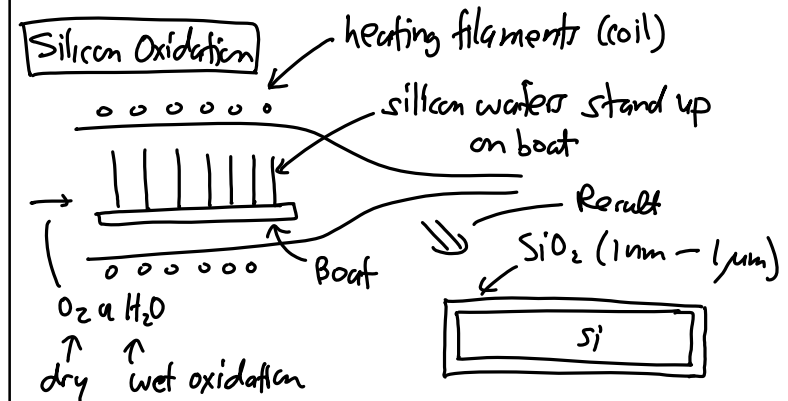 Silicon Oxidation
heating filaments (coil)
silicon wafers stand up
on boat
Result
SiO₂ (1nm – 1μm)
Boat
Si
O₂ a H₂O
dry wet oxidation